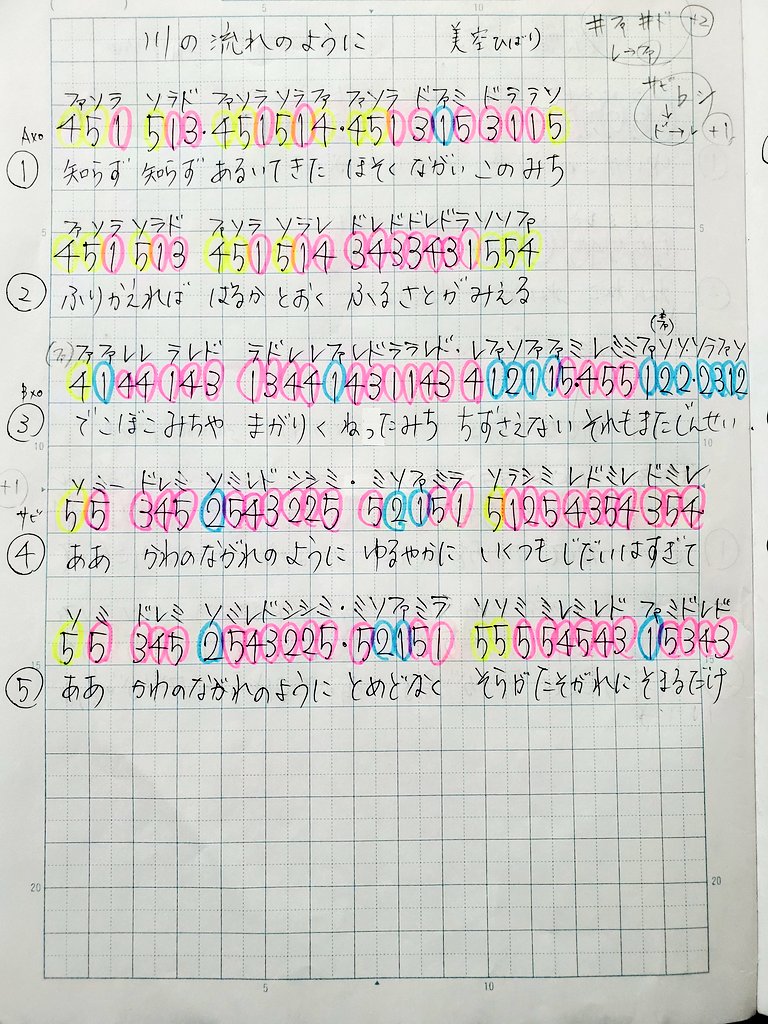 川の流れのように 美空ひばり #ファ #ド +2
レ→ファ
サビ ♭シ
↓
ド→レ +1
ファソラ ソラド ファソラソラファ ファソラ ドファミ ドララソ
A×0 451 513・451514・451 315 3115
① 知らず 知らず あるいてきた ほそく ながい このみち
ファソラ ソラド ファソラ ソラレ ドレドドレドラソソファ
451 513 451 514 3433431554
② ふりかえれば はるか とおく ふるさとがみえる
(#ファ)
(ファ) ファファレレ ラレド ラドレレファレドララレド・レファソファファミレミミファソソソラファソ
B×0 4144 143 134414301143 412115・455122・2312
③ でこぼこみちや まがりくねったみち ちずさえない それもまたじんせい
+1 ソミー ドレミ ソミレドシシミ・ミソファミラ ソラシミレドミレドミレ
サビ 55 345 2543225 52151 51254354354
④ ああ かわのながれのように ゆるやかに いくつも じだいはすぎて
ソミ ドレミ ソミレドシシミ・ミソファミラ ソソミミレミレドファミドレド
55 345 2543225・52151 5555454315343
⑤ ああ かわのながれのように とめどなく そらがたそがれに そまるだけ